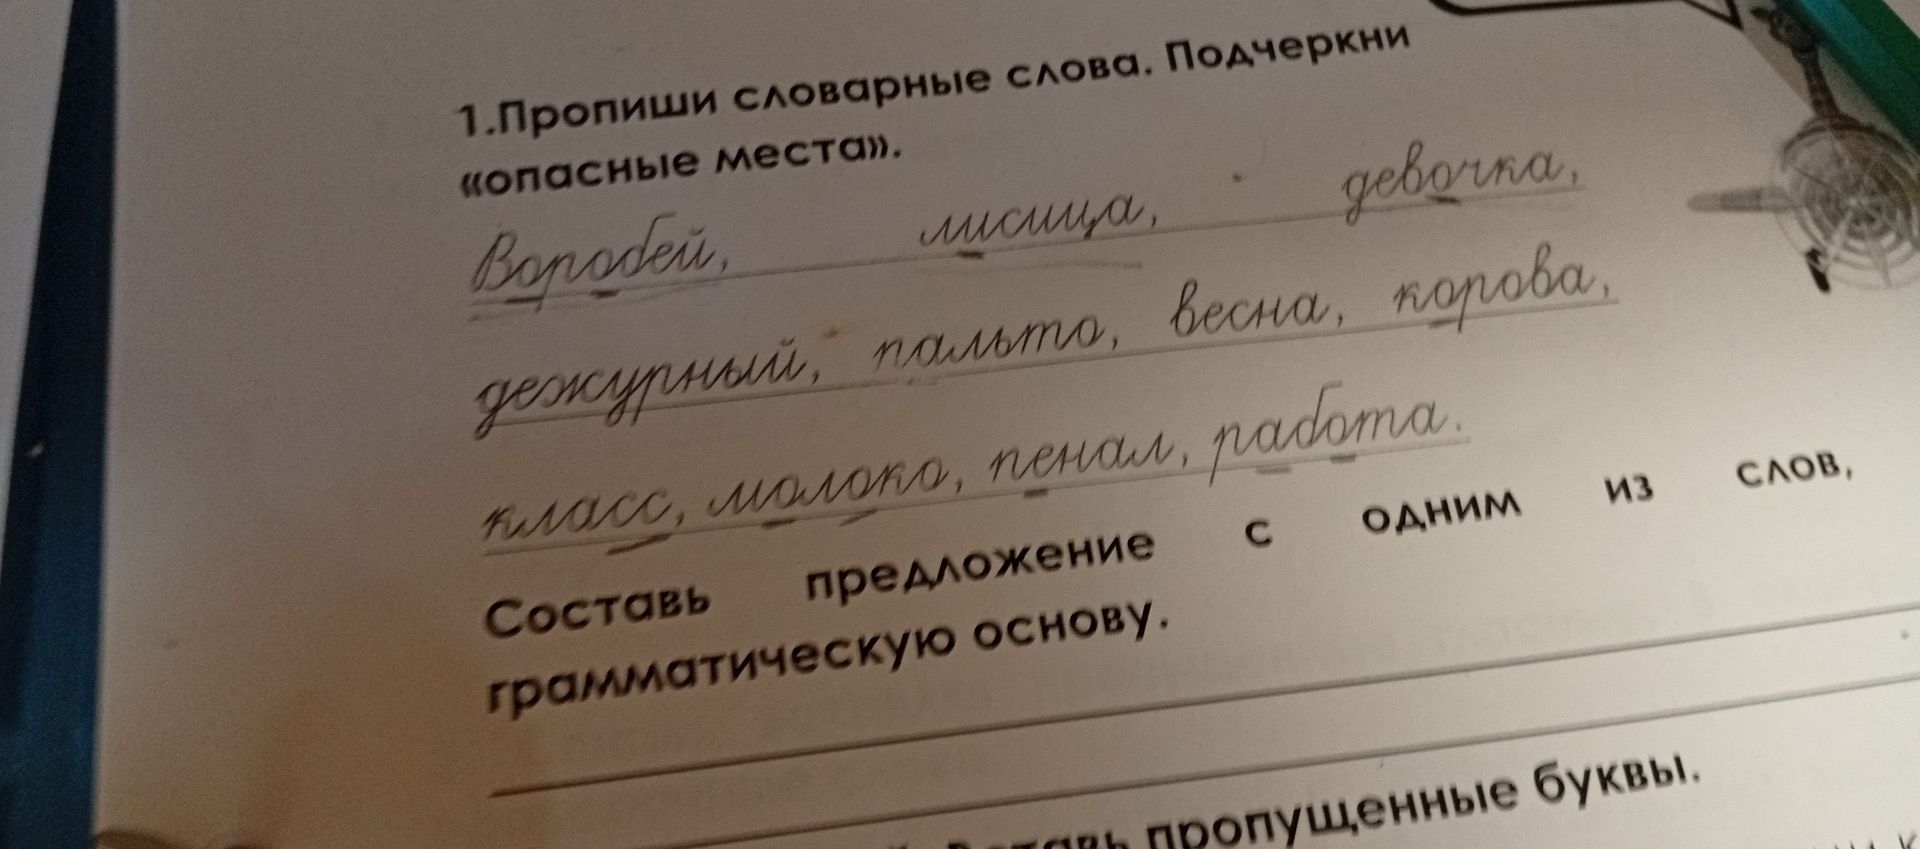 1.Пропиши словарные слова. Подчеркни
«опасные места».
Воробей, лисица, девочка,
дежурный, пальто, весна, корова,
класс, молоко, пенал, работа.
Составь предложение с одним из слов,
грамматическую основу.
пропущенные буквы.